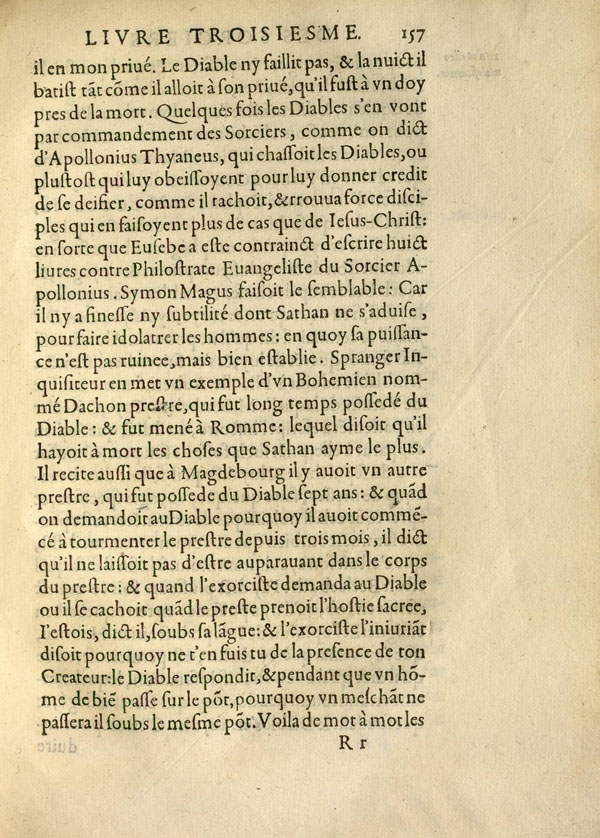 LIVRE TROISIESME. 157
il en mon priué. Le Diable ny faillit pas, & la nuict il
batiſt tãt cõme il alloit à ſon priué, qu'il fuſt à vn doy
pres de la mort. Quelques fois les Diables s'en vont
par commandement des Sorciers, comme on dict
d'Apollonius Thyaneus, qui chaſſoit les Diables, ou
pluſtoſt qui luy obeiſſoyent pour luy donner credit
de ſe deifier, comme il tachoit, & trouua force diſci-
ples qui en faiſoyent plus de cas que de Ieſus-Chriſt:
en ſorte que Euſebe a eſte contrainct d'eſcrire huict
liures contre Philoſtrate Euangeliſte du Sorcier A-
pollonius. Symon Magus faiſoit le ſemblable: Car
il ny a fineſſe ny ſubtilité dont Sathan ne s'aduiſe,
pour faire idolatrer les hommes: en quoy ſa puiſſan-
ce n'eſt pas ruinee, mais bien eſtablie. Spranger In-
quiſiteur en met vn exemple d'vn Bohemien nom-
mé Dachon preſtre, qui fut long temps poſſedé du
Diable: & fut mené à Romme: lequel diſoit qu'il
hayoit à mort les choſes que Sathan ayme le plus.
Il recite auſſi que à Magdebourg il y auoit vn autre
preſtre, qui fut poſſede du Diable ſept ans: & quãd
on demandoit au Diable pourquoy il auoit commẽ-
cé à tourmenter le preſtre depuis trois mois, il dict
qu'il ne laiſſoit pas d'eſtre auparauant dans le corps
du preſtre: & quand l'exorciſte demanda au Diable
ou il ſe cachoit quãd le preſte prenoit l'hoſtie ſacree,
I'eſtois, dict il, ſoubs ſa lãgue: & l'exorciſte l'iniuriãt
diſoit pourquoy ne t'en fuis tu de la preſence de ton
Createur: le Diable reſpondit, & pendant que vn hõ-
me de biẽ paſſe ſur le põt, pourquoy vn meſchãt ne
paſſera il ſoubs le meſme põt. Voila de mot à mot les
R r